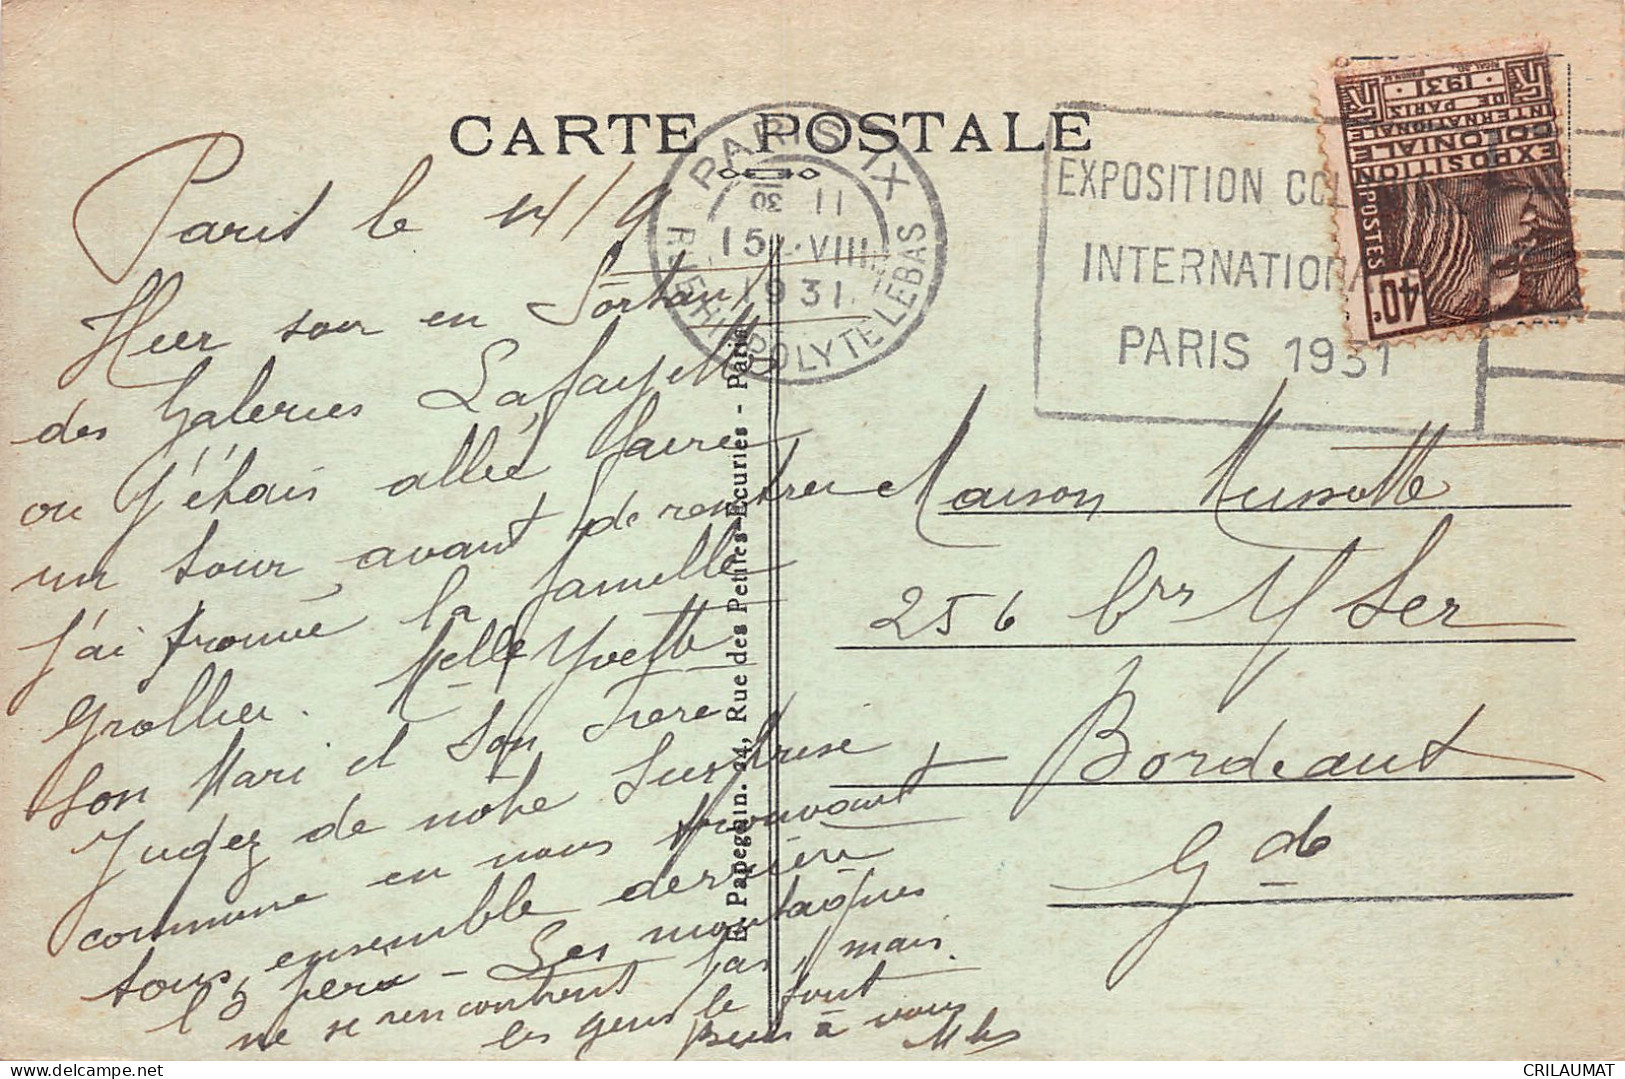 CARTE POSTALE
PARIS IX
RUE HIPPOLYTE LEBAS
30 11
15 VIII
1931
EXPOSITION COL
INTERNATIONA
PARIS 1931
EXPOSITION
COLONIALE
INTERNATIONALE
DE PARIS
1931
POSTES
40c.
Paris le 14/9
Hier soir en Sortant
des Galeries Lafayette
ou j'étais allée faire
un tour avant de rentrer
J'ai trouvé la famille
Grollier. Melle Yvette
Son Mari et Son Frere
Jugez de notre Surprise
commune en nous trouvant
tous ensemble derrière
Les montagnes
ne se rencontrent pas, mais
les gens le font
à vous
Maison Mussotte
256 Yser
Bordeaux
Gde
E. Papeghin. 24, Rue des Petites-Ecuries - Paris
CRILAUMAT